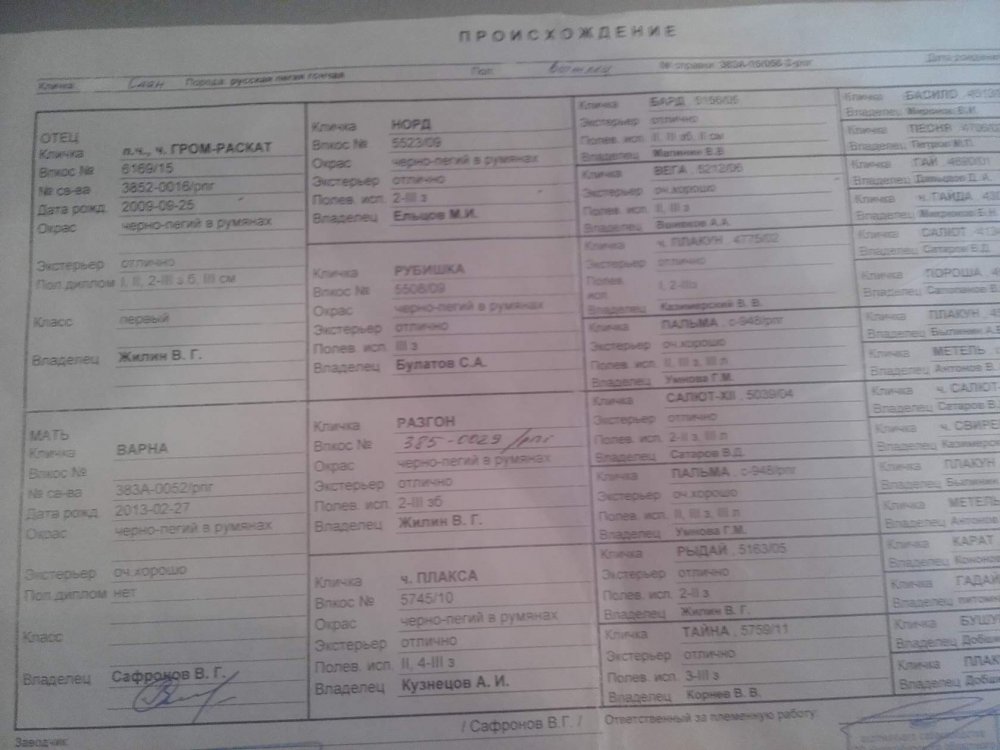 ПРОИСХОЖДЕНИЕ
Кличка: Порода: русская пегая гончая Пол: № справки 383А-15/056-2-рпг Дата рожден
ОТЕЦ
Кличка п.ч., ч. ГРОМ-РАСКАТ
Впкос № 6169/15
№ св-ва 3852-0016/рпг
Дата рожд. 2009-09-25
Окрас черно-пегий в румянах
Экстерьер отлично
Пол.диплом I, II, 2-III з.б, III см
Класс первый
Владелец Жилин В. Г.
МАТЬ
Кличка ВАРНА
Впкос №
№ св-ва 383А-0052/рпг
Дата рожд. 2013-02-27
Окрас черно-пегий в румянах
Экстерьер оч.хорошо
Пол.диплом нет
Класс
Владелец Сафронов В. Г.
Кличка НОРД
Впкос № 5523/09
Окрас черно-пегий в румянах
Экстерьер отлично
Полев. исп. 2-III з
Владелец Ельцов М.И.
Кличка РУБИШКА
Впкос № 5508/09
Окрас черно-пегий в румянах
Экстерьер отлично
Полев. исп. III з
Владелец Булатов С.А.
Кличка РАЗГОН
Впкос № 385-0029/рпг
Окрас черно-пегий в румянах
Экстерьер отлично
Полев. исп. 2-III зб
Владелец Жилин В. Г.
Кличка ч. ПЛАКСА
Впкос № 5745/10
Окрас черно-пегий в румянах
Экстерьер отлично
Полев. исп. II, 4-III з
Владелец Кузнецов А. И.
Кличка БАРД , 5156/05
Экстерьер отлично
Полев. исп. II, III зб, II см
Владелец В.В
Кличка ВЕГА , 5212/06
Экстерьер оч.хорошо
Полев. исп. II, III з
Владелец А.А.
Кличка ч. ПЛАКУН , 4775/02
Экстерьер отлично
Полев. исп. I, 2-IIIз
Владелец Казимирский В. В.
Кличка ПАЛЬМА , с-948/рпг
Экстерьер оч.хорошо
Полев. исп. II, III з, III л
Владелец Умнова Г.М.
Кличка САЛЮТ-XII , 5039/04
Экстерьер отлично
Полев. исп. 2-II з, III л
Владелец Сатаров В.Д.
Кличка ПАЛЬМА , с-948/рпг
Экстерьер оч.хорошо
Полев. исп. II, III з, III л
Владелец Умнова Г.М.
Кличка РЫДАЙ , 5163/05
Экстерьер отлично
Полев. исп. 2-II з
Владелец Жилин В. Г.
Кличка ТАЙНА , 5759/11
Экстерьер отлично
Полев. исп. 3-III з
Владелец Корнев В. В.
Кличка БАСИЛО
Владелец
Кличка ПЕСНЯ
Владелец Петров М.П.
Кличка ГАЙ , 4690/01
Владелец Давыдов Д. А.
Кличка ч. ГАЙДА
Владелец
Кличка САЛЮТ
Владелец Сатаров В.Д.
Кличка ПОРОША
Владелец
Кличка ПЛАКУН
Владелец
Кличка МЕТЕЛЬ
Владелец Антонов В.
Кличка ч. САЛЮТ
Владелец Сатаров В.
Кличка ч. СВИРЕ
Владелец Казимирс
Кличка ПЛАКУН
Владелец
Кличка МЕТЕЛЬ
Владелец Антонов
Кличка КАРАТ
Владелец Кононо
Кличка ГАДАЙ
Владелец питомн
Кличка БУШУ
Владелец Добши
Кличка ПЛАК
Владелец Добши
Заводчик: / Сафронов В.Г. / Ответственный за племенную работу: